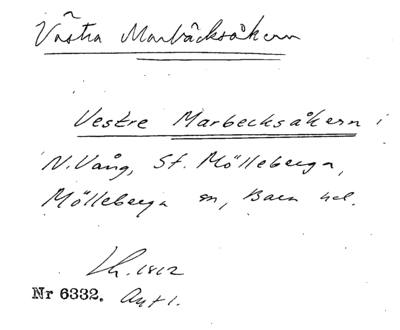 Västra Marbäcksåkern
Vestre Marbecksåkern i
N. Vång, St. Mölleberga,
Mölleberga sn, Bara hd.
Lh. 1812
Nr 6332. Akt 1.